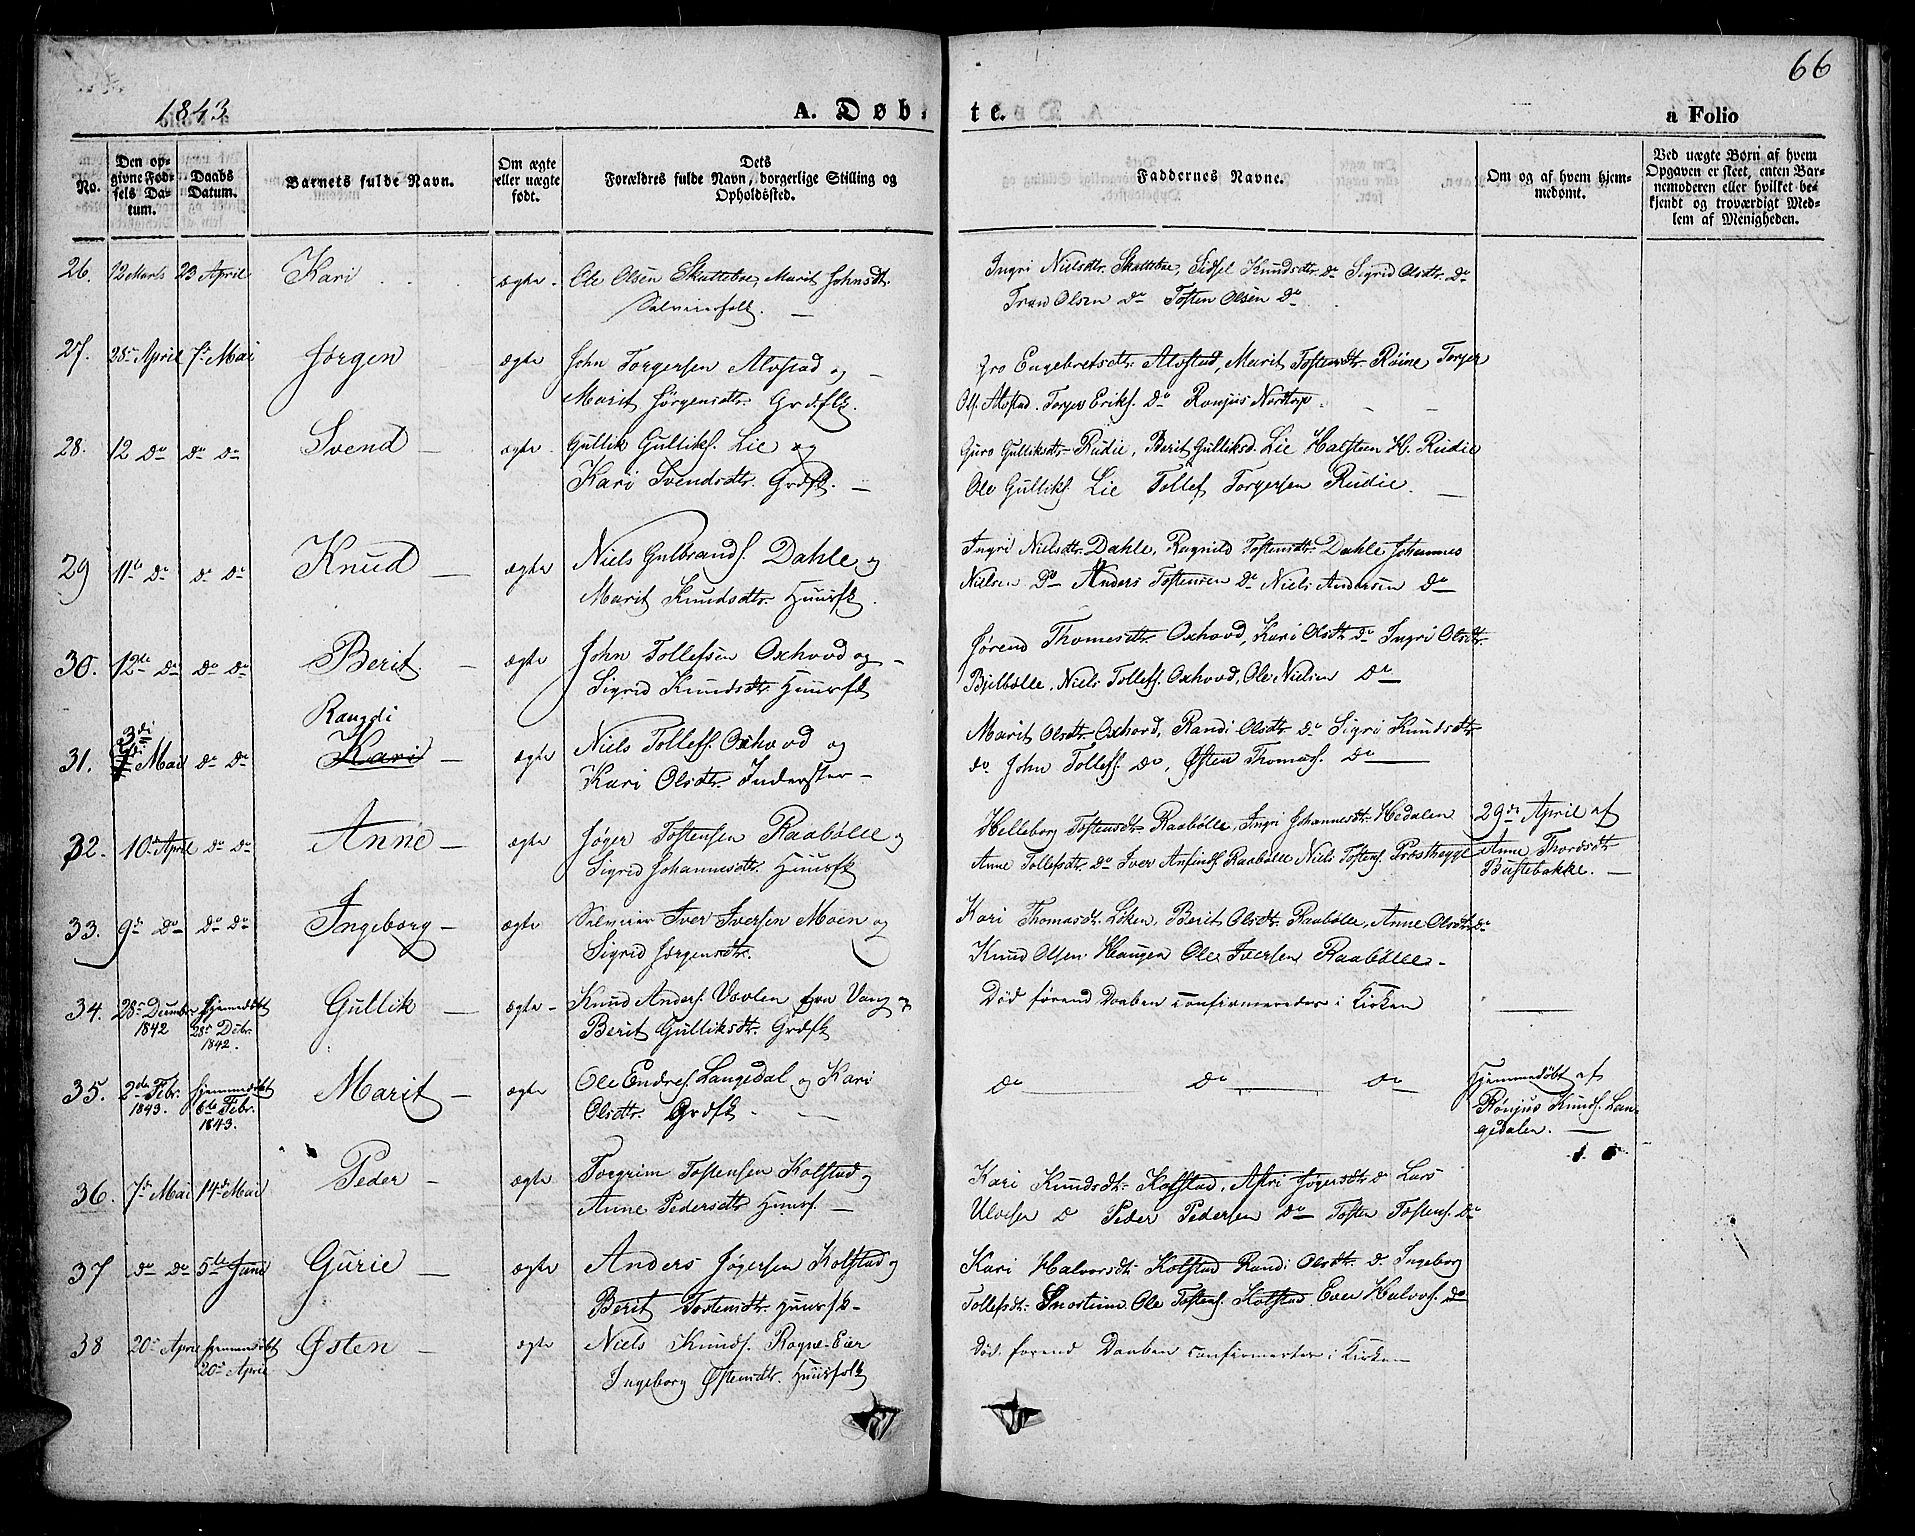 66
1843
A. Døb=
te.
a Folio
No.
Den op=
givne Fød=
sels Da=
tum.
Daabs
Datum.
Barnets fulde Navn.
Om ægte
eller uægte
født.
Dets
Forældres fulde Navn, borgerlige Stilling og
Opholdssted.
Faddernes Navne.
Om og af hvem hjem=
medømt.
Ved uægte Børn af hvem
Opgaven er skeet, enten Bar=
nemoderen eller hvilket be=
kjendt og troværdigt Med=
lem af Menigheden.
26. 12 Marts 23 April Kari ægte. Ole Olsen Skattebøe, Marit Johnsdt.
Selveierfolk.
Ingri Nielsdtr. Skattebøe, Sidsel Knudsdtr. do Sigrid Olsdtr. do
Tron Olsen do Tosten Olsen do
27. 28. April 7. Mai Jørgen ægte John Torgersen Alvstad og
Marit Jørgensdtr. Grdflk.
Gro Engebretsdtr. Alvstad, Marit Tostensdtr. Røine Torger
Ols. Alvstad. Torger Eriks. do Ronjus Nortorp.
28. 12 do do do Svend ægte. Gullik Gulliks. Lie og
Kari Svendsdtr. Grdfk.
Guro Gulliksdtr. Rudie, Berit Gulliksd. Lie Halsteen H. Rudie
Ole Gulliks. Lie Tollef Torgersen Rudie.
29 11te do do do Knud ægte Niels Gulbrands. Dahle og
Marit Knudsdtr. Huusfk.
Ingri Nielsdtr. Dahle, Ragnild Tostensdtr. Dahle Johannes
Nielsen do Anders Tostensen do Niels Andersen do
30. 12te do do do Berit ægte John Tollefsen Oxhovd og
Sigrid Knudsdtr. Huusfk
Jørend Thomesdtr. Oxhovd, Kari Olsdtr. do Ingri Olsdtr.
Bjelbølle, Niels Tollefs. Oxhovd, Ole Nielsen do
31. 3di Mai do do Rangdi
Kari ægte Niels Tollefs. Oxhovd og
Kari Olsdtr. Inderster
Marit Olsdtr. Oxhovd, Randi Olsdtr. do Sigri Knudsdtr.
do John Tollefs. do, Østen Thomas. do
32. 10de April do do Anne ægte Jøger Tostensen Raabølle og
Sigrid Johannesdtr. Huusfk
Helleborg Tostensdtr. Raabølle, Ingri Johannesdtr. Hedalen
Anne Tollefsdtr. do Iver Anfinds. Raabølle Niels Tostens. Præsthegge
29de April af
Anne Thordsdtr.
Bustebakke.
33. 9de do do do Ingeborg ægte Selveier Iver Iversen Moen og
Sigrid Jørgensdtr.
Kari Thomasdtr. Leken, Berit Olsdtr. Raabølle, Anne Olsdtr. do
Knud Olsen Haugen Ole Iversen Raabølle
34. 28. December
1842 hjemmedøbt
28. Debr.
1842. Gullik ægte Knud Anders. Vøvlen fra Vang og
Berit Gulliksdtr. Grdfk
Død førend Daaben confirmeredes i Kirken
35. 2den Febr.
1843. hjemmedøbt
6te Febr.
1843. Marit ægte Ole Endres. Langedal og Kari
Olsdtr. Grdfk
do do do
Hjemmedøbt af
Rønjus Knuds. Lan=
gedalen.
36. 7de Mai 14de Mai Peder ægte Torgrim Tostensen Kolstad og
Anne Pedersdtr. Huusf.
Kari Knudsdtr. Kolstad, Astri Jøgersdtr. do Lars
Ulvesen do Peder Pedersen do Tosten Tostens. do
37 do do 5te Juni Gurie ægte Anders Jøgersen Kolstad og
Berit Tostensdtr. Huusfk.
Kari Halvorsdtr. Kolstad Randi Olsdtr. do Ingeborg
Tollefsdtr. Snortum. Ole Tostens. Kolstad, Even Halvors. do
38 20. April hjemmedøbt
20. April Østen ægte Niels Knuds. Rogne-Eier
Ingeborg Østensdtr. Huusfolk
Død. førend Daaben confirmertes i Kirken